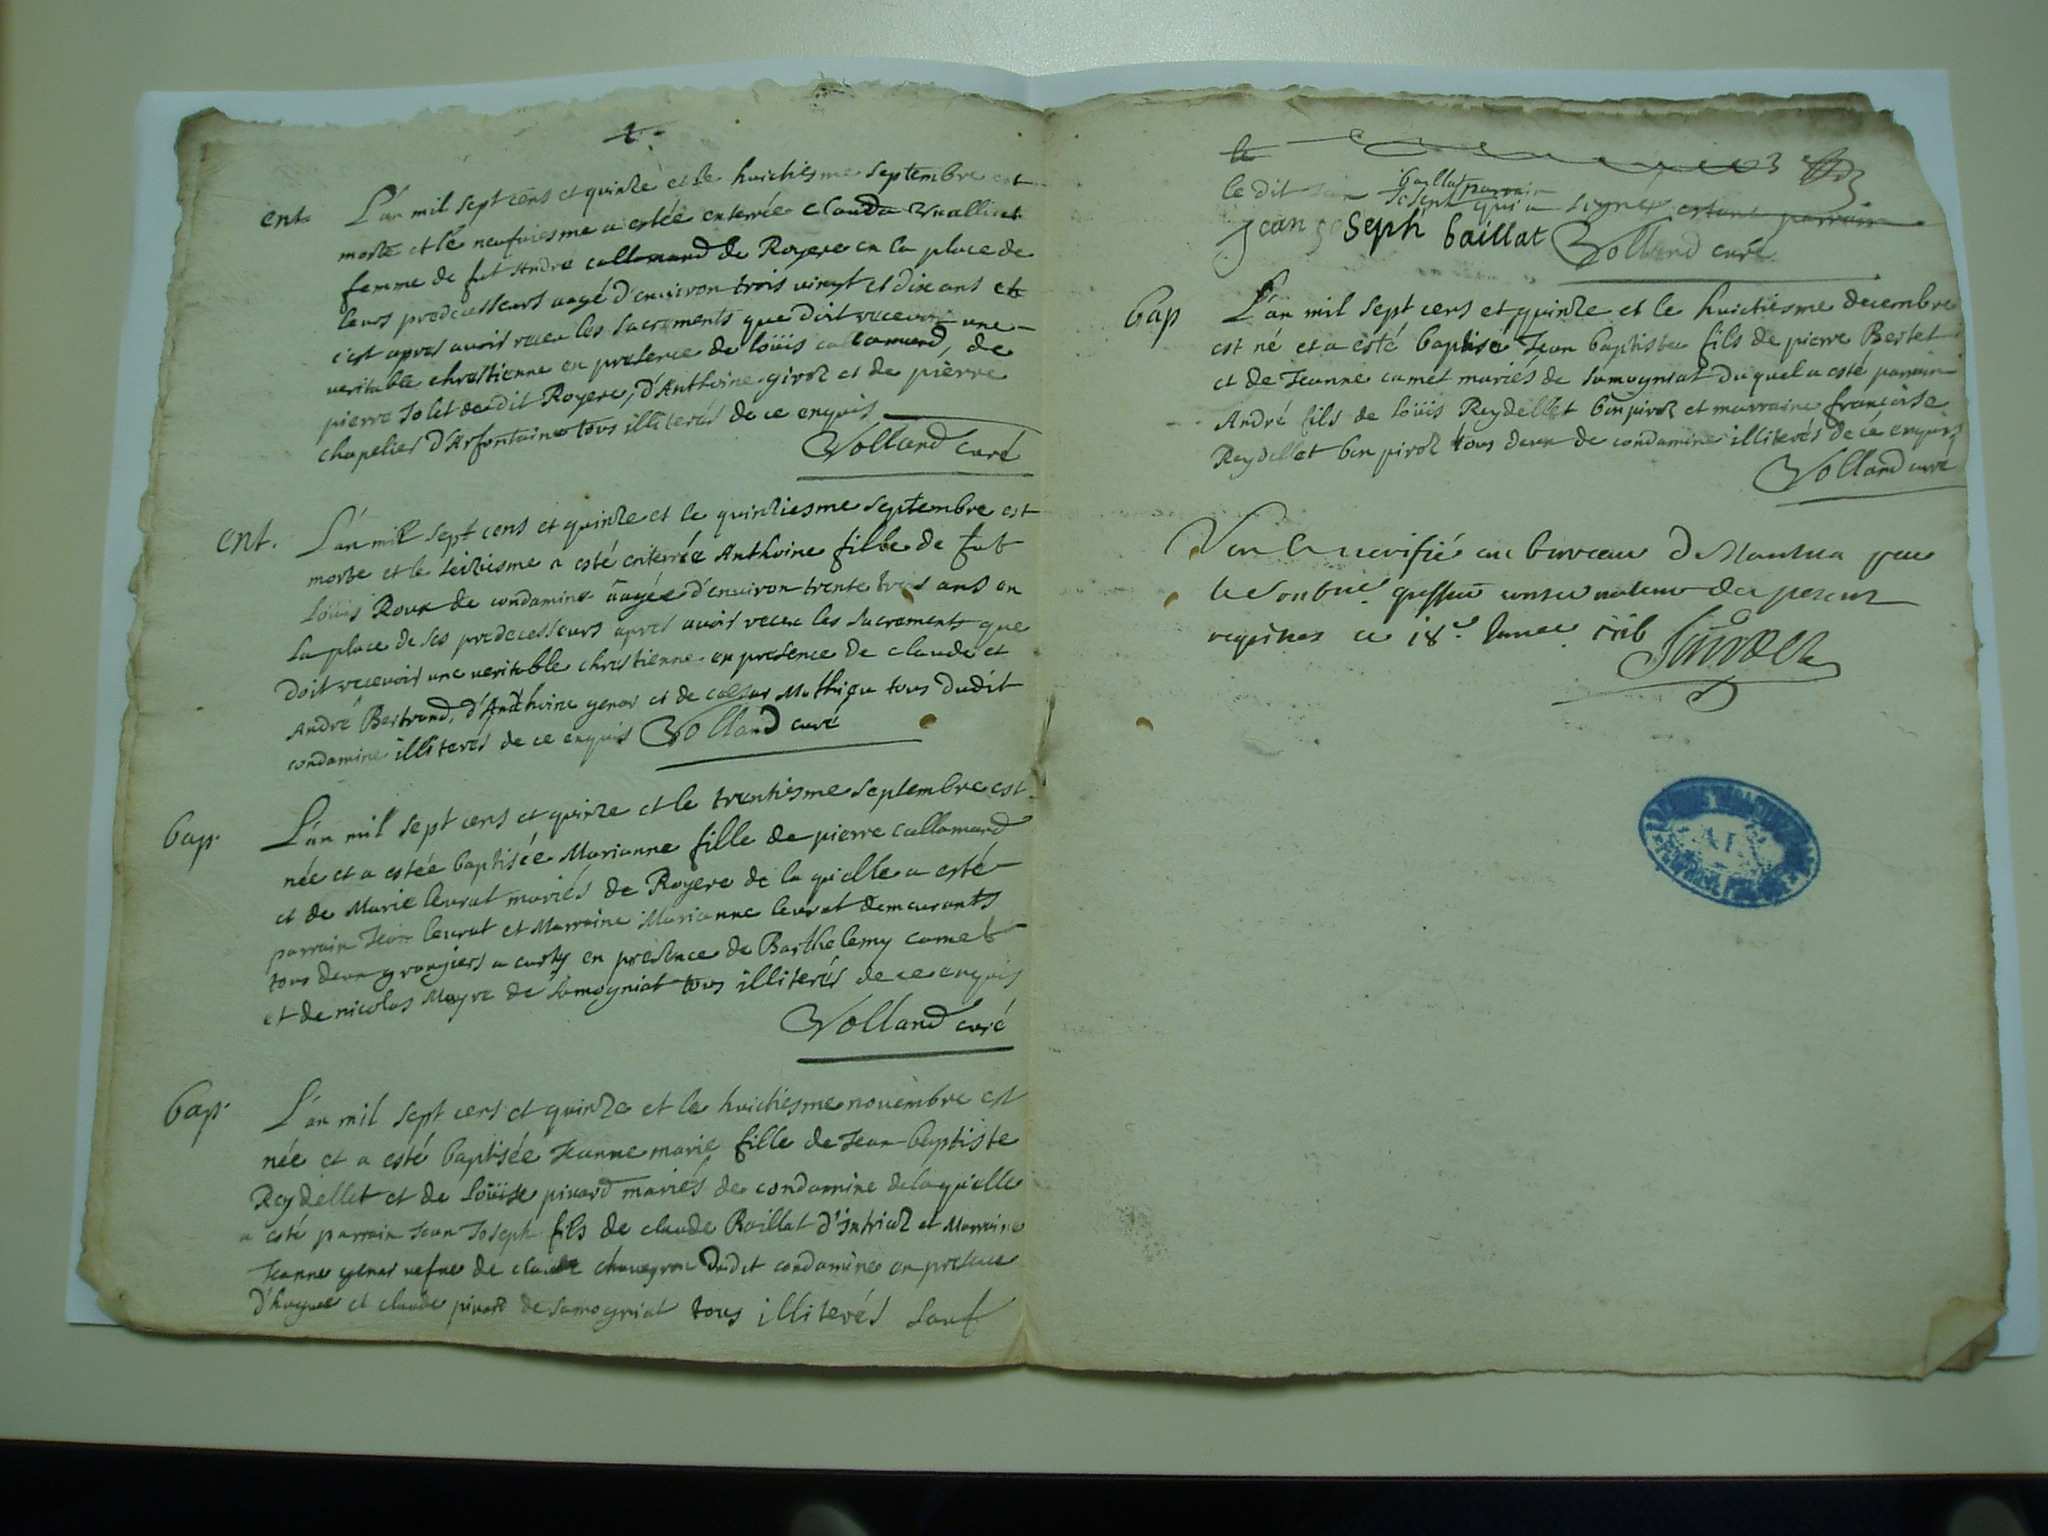 ent. L'an mil sept cens et quinze et le huictiesme septembre est
morte et le neufviesme a estée enterrée Clauda
femme de fut André callamand de Royere en la place de
leurs predecesseurs aagé d'environ trois vingt et dix ans et
c'est apres avoir receu les sacrements que doit recevoir une
veritable chrestienne en presence de loüis callamand, de
pierre Jolet dudit Royere, d'Anthoine girod et de pierre
chapelier d'Arfontaine tous illiterés de ce enquis
Volland curé
ent. L'an mil sept cens et quinze et le quinziesme septembre est
morte et le seiziesme a esté enterrée Anthoine fille de fut
Loüis Roux de condamine aagée d'environ trente trois ans en
la place de ses predecesseurs apres avoir receu les sacrements que
doit recevoir une veritable chrestienne en presence de claude et
André Bertrand, d'Anthoine genos et de Mathieu tous dudit
condamine illiterés de ce enquis Volland curé
bap. L'an mil sept cens et quinze et le trentiesme septembre est
née et a estée baptisée Marianne fille de pierre callamand
et de Marie leurat mariés de Royere de la quelle a esté
parrain Jean leurat et Marraine Marianne leurat demeurants
tous deux grangiers a en presence de Barthelemy camet
et de nicolas Mayre de samogniat tous illiterés de ce enquis
Volland curé
bap. L'an mil sept cens et quinze et le huictiesme novembre est
née et a esté baptisée Jeanne marie fille de Jean baptiste
Reydellet et de loüise pivard mariés de condamine de la quelle
a esté parrain Jean Joseph fils de claude Baillat d'Intriat et Marraine
Jeanne genos vefve de claude dudit condamine en presence
d'hugue et claude pivard de samogniat tous illiterés sauf
le
le dit Jean Joseph baillat parrain qui a signé estant parrain
Jean joseph baillat Volland curé
bap L'an mil sept cens et quinze et le huictiesme decembre
est né et a esté baptisé Jean baptiste fils de pierre Bertet
et de Jeanne camet mariés de samogniat duquel a esté parrain
André fils de loüis Reydellet bon pivoz et marraine françoise
Reydellet bon pivoz tous deux de condamine illiterés de ce enquis
Volland curé
Veu et verifié au bureau de Nantua par
le greffier conservateur des presens
registres ce 18e